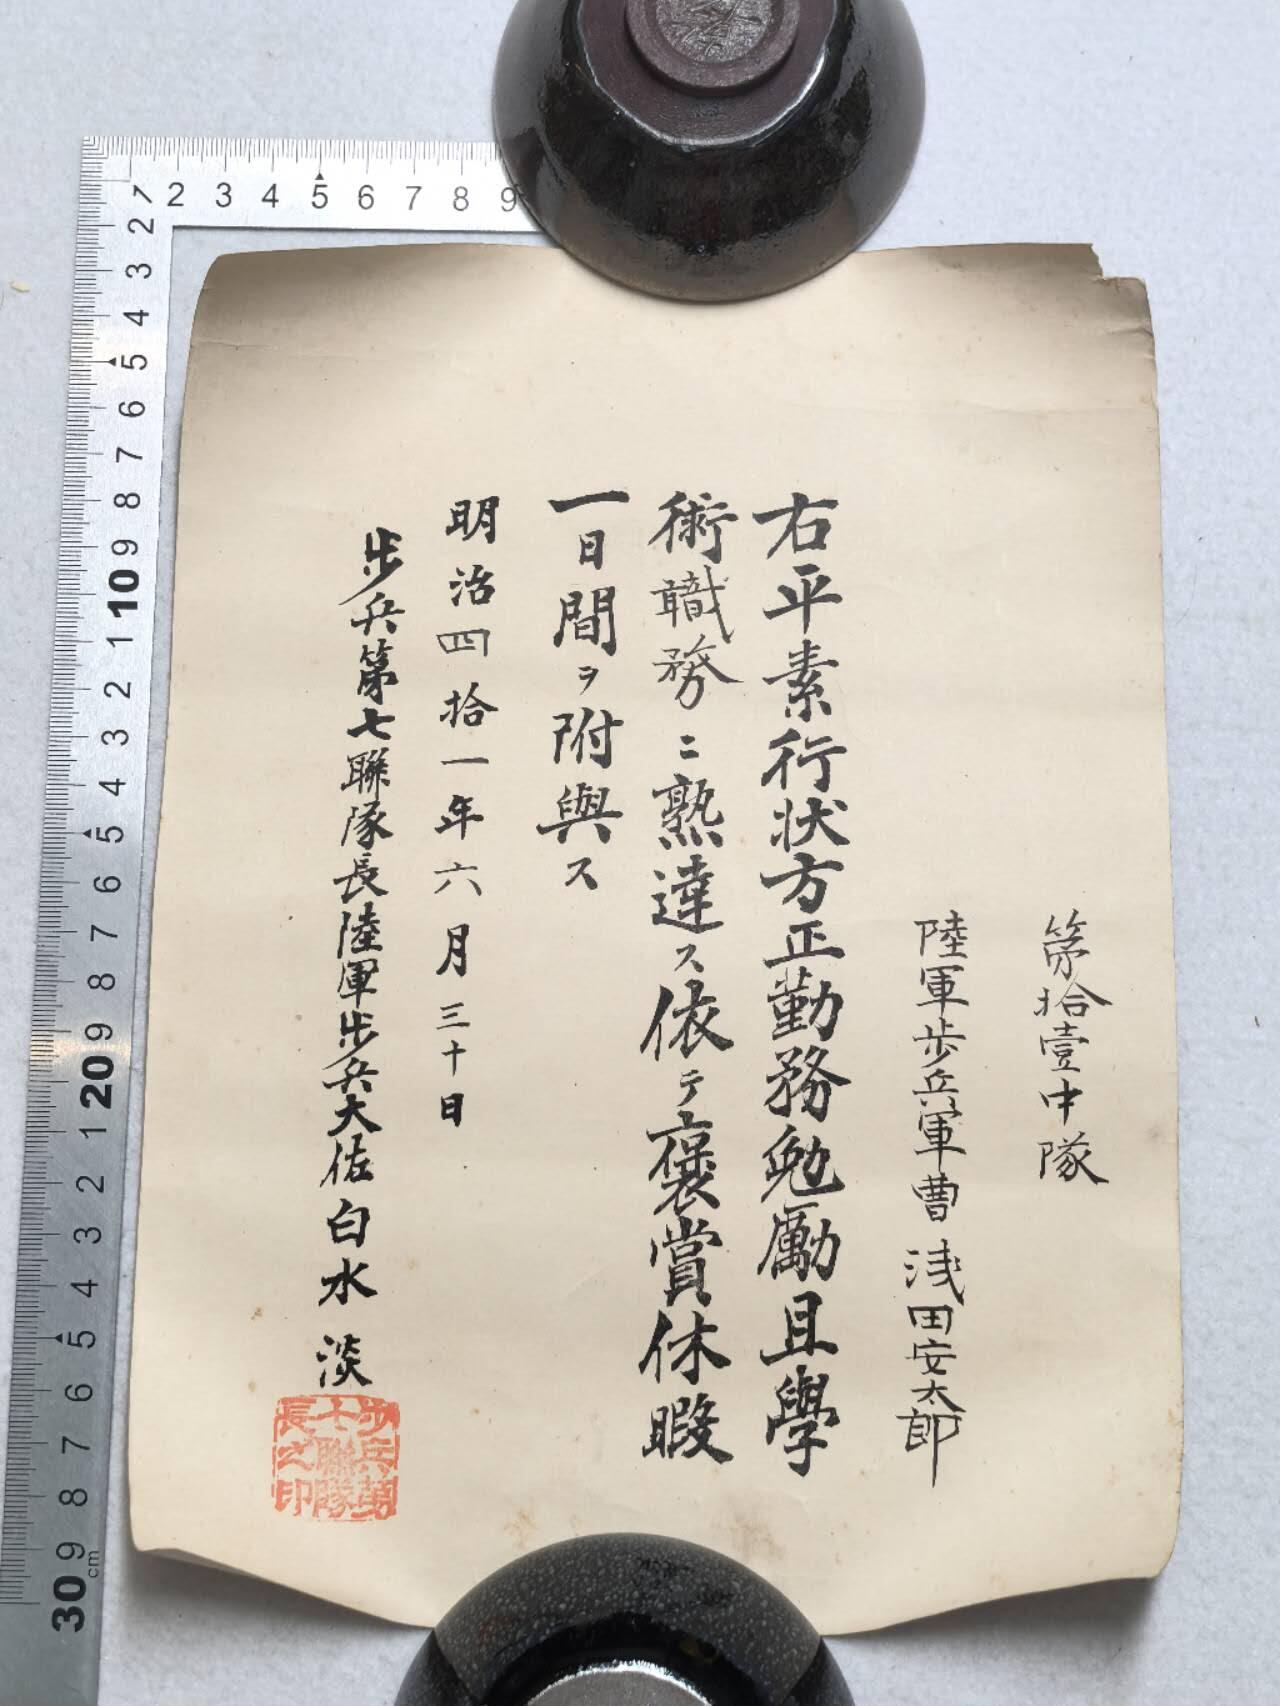 第拾壹中隊
陸軍歩兵軍曹 浅田安太郎
右平素行状方正勤務勉励且學
術職務ニ熟達ス依テ褒賞休暇
一日間ヲ附與ス
明治四拾一年六月三十日
歩兵第七聯隊長陸軍歩兵大佐白水淡
歩兵第
七聯隊
長之印
1 2 3 4 5 6 7 8 9
2 3 4 5 6 7 8 9 10 1 2 3 4 5 6 7 8 9 20 1 2 3 4 5 6 7 8 9 30
cm